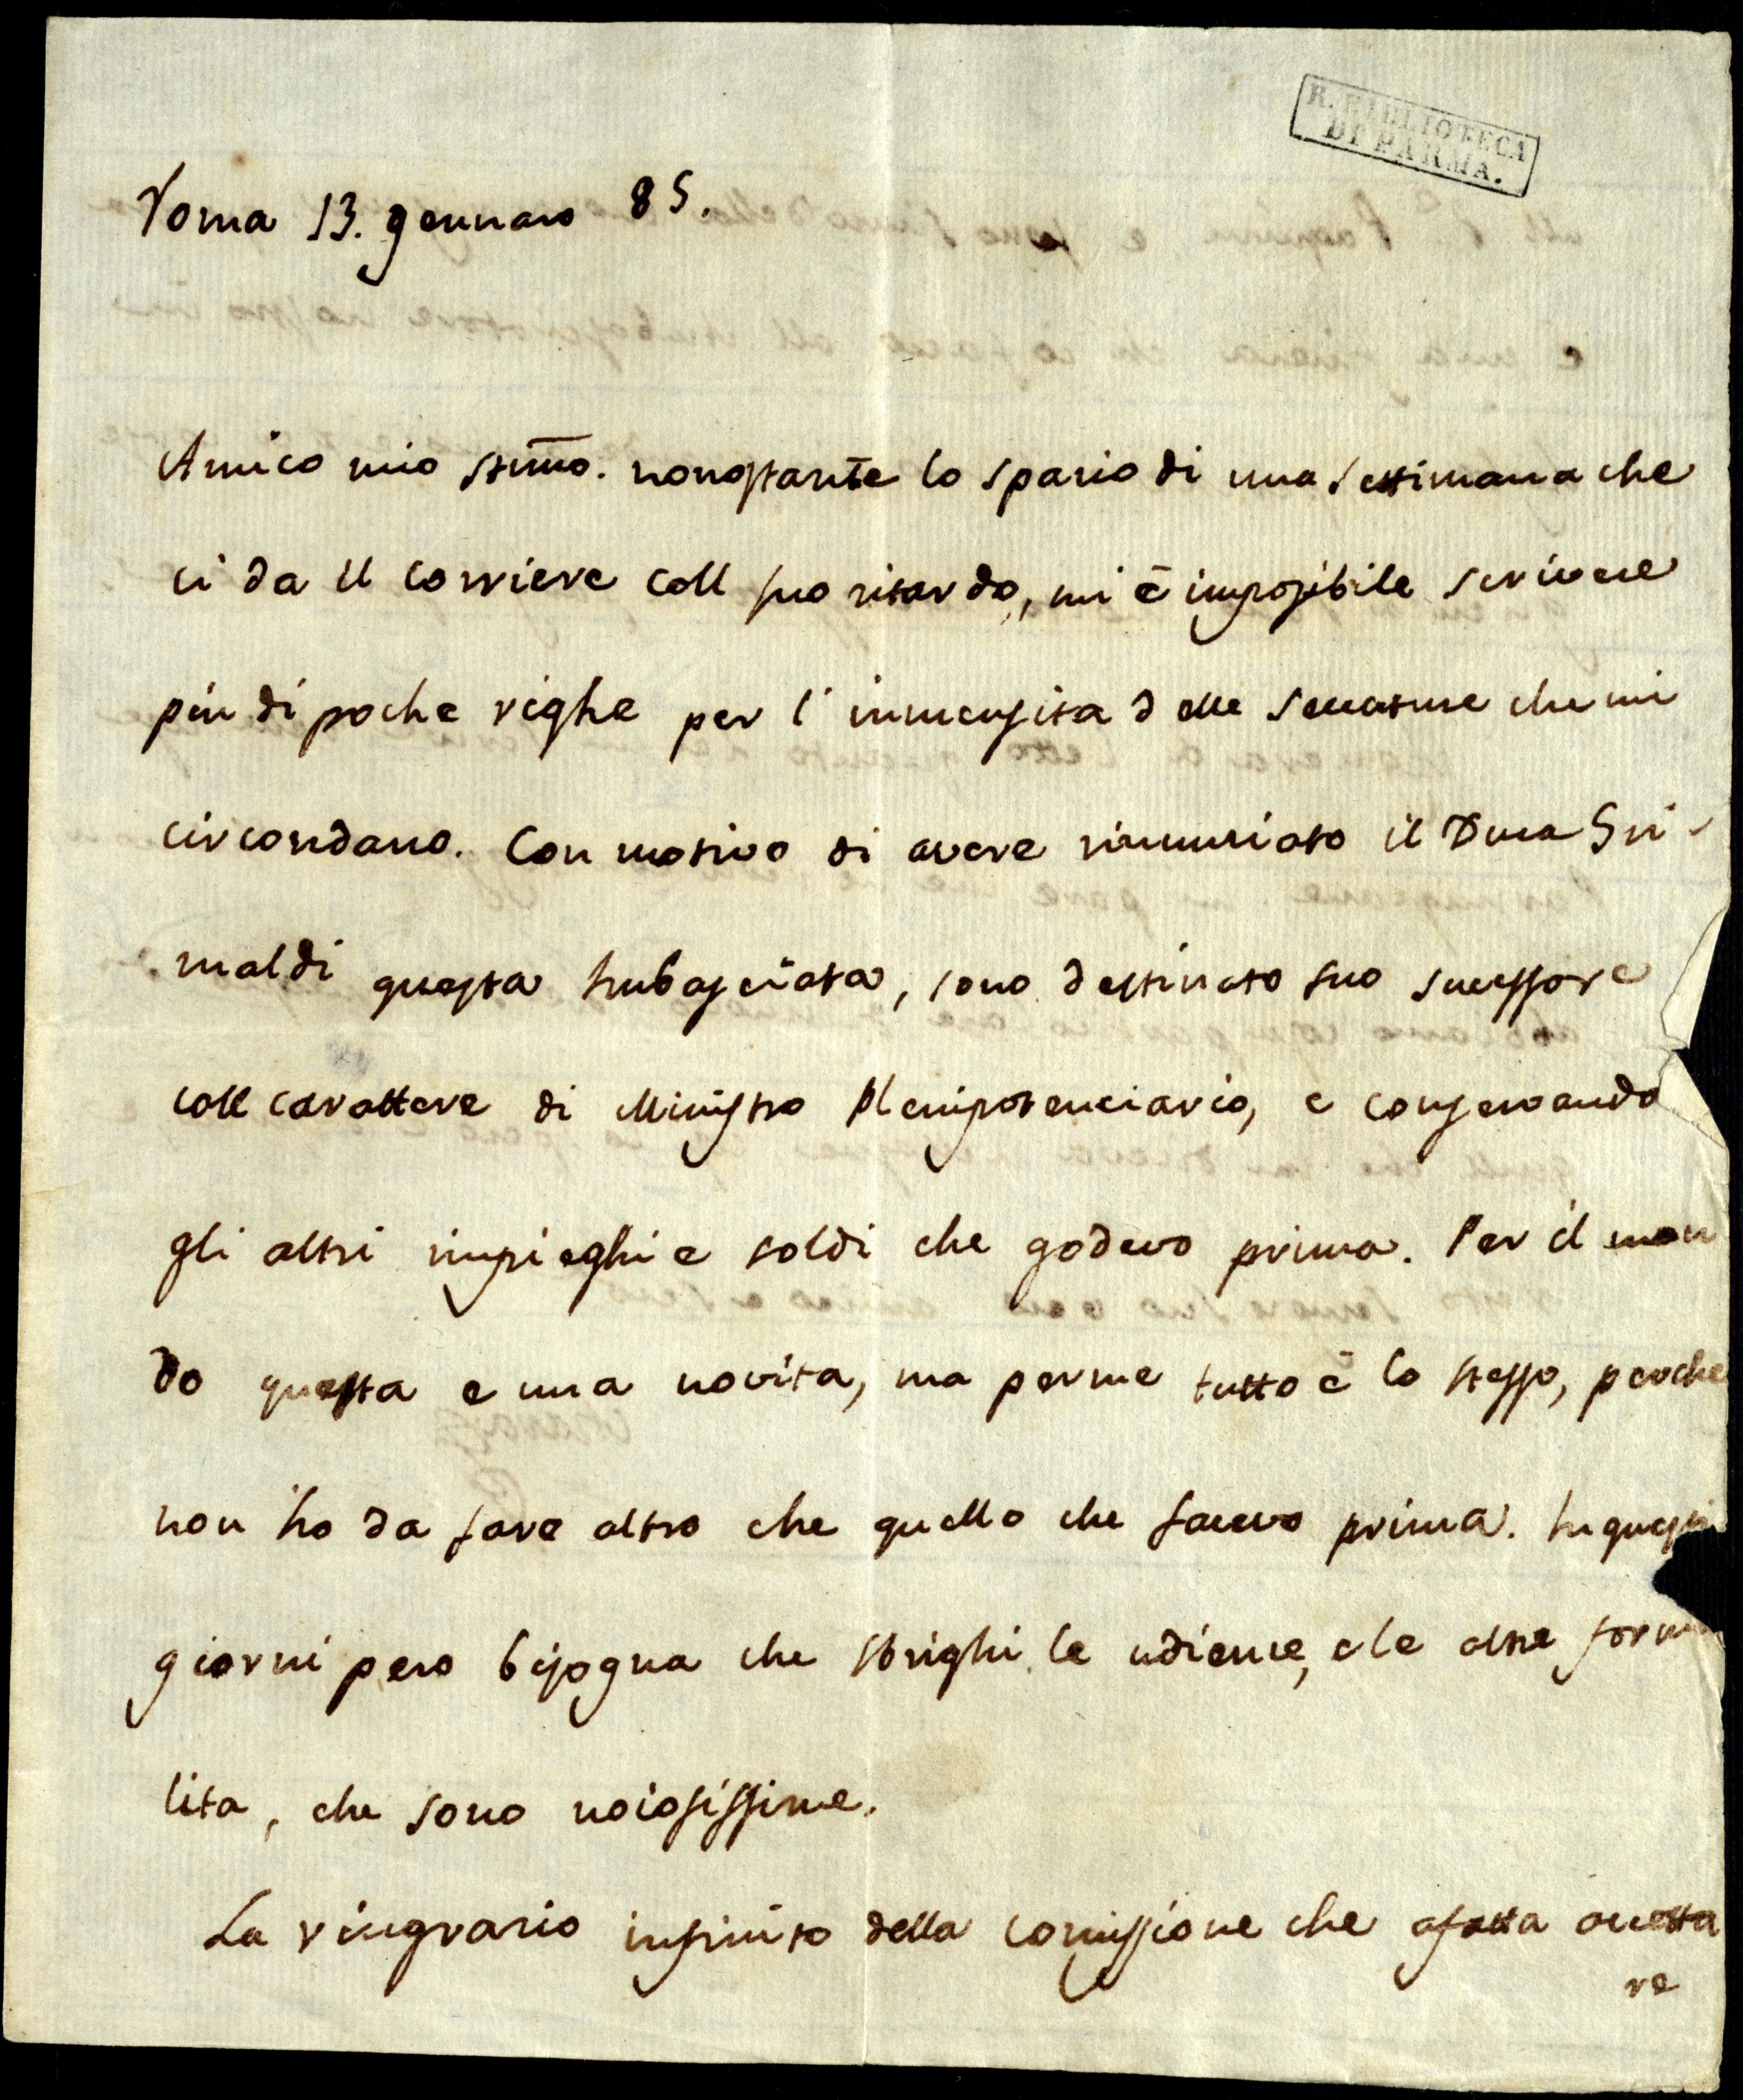 R. BIBLIOTECA
DI PARMA.
Roma 13. gennaro 85.
Amico mio stimo. nonostante lo spazio di una settimana che
ci da il corriere coll suo ritardo, mi è impossibile scrivere
piu di poche righe per l'immensita delle seccature che mi
circondano. Con motivo di avere rinunziato il Duca Gri-
maldi questa Imbasciata, sono destinato suo successore
coll carattere di Ministro Plenipotenciario, e conservando
gli altri impieghi e soldi che godevo prima. Per il mon
do questa e una novita, ma per me tutto è lo stesso, perche
non ho da fare altro che quello che facevo prima. In questi
giorni pero bisogna che sbrighi le udienze, e le altre forma
lita, che sono noiosissime.
La ringrazio infinito della comissione che a fatta accetta
re